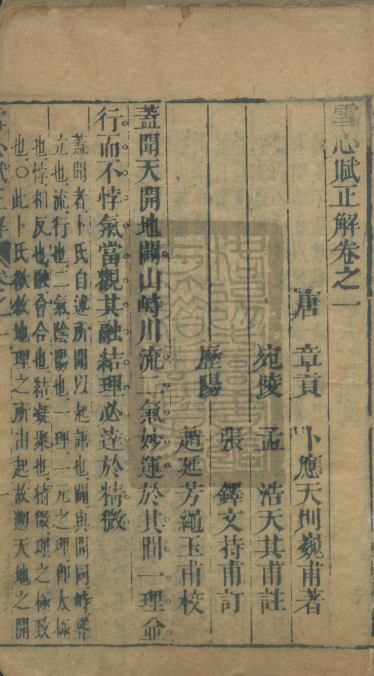 雪心賦正解卷之一
唐 章貢 卜應天則巍甫著
宛陵 孟 浩天其甫註
張 鐸文持甫訂
歷陽
趙廷芳繩玉甫校
蓋聞天開地闢山峙川流二氣妙運於其間一理並
行而不悖氣當觀其融結理必達於精微
蓋聞者卜氏自述所聞以起語也闢與開同峙聳
立也流行也二氣陰陽也一理一元之理卽太極
也悖相反也融會合也結凝聚也精微理之極致
也○此卜氏欲敘地理之所由起故溯天地之開